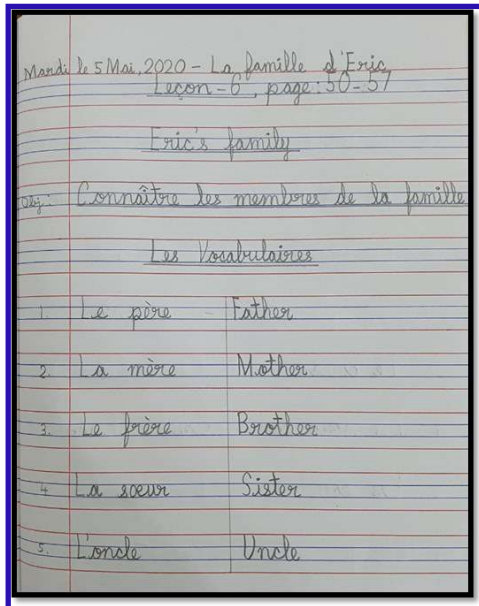 Mardi le 5 Mai, 2020 - La famille d'Eric
Leçon - 6, page: 50-57
Eric's family
Obj: Connaître les membres de la famille
Les Vocabulaires
1. Le père - Father
2. La mère Mother
3. Le frère Brother
4 La soeur Sister
5. L'oncle Uncle